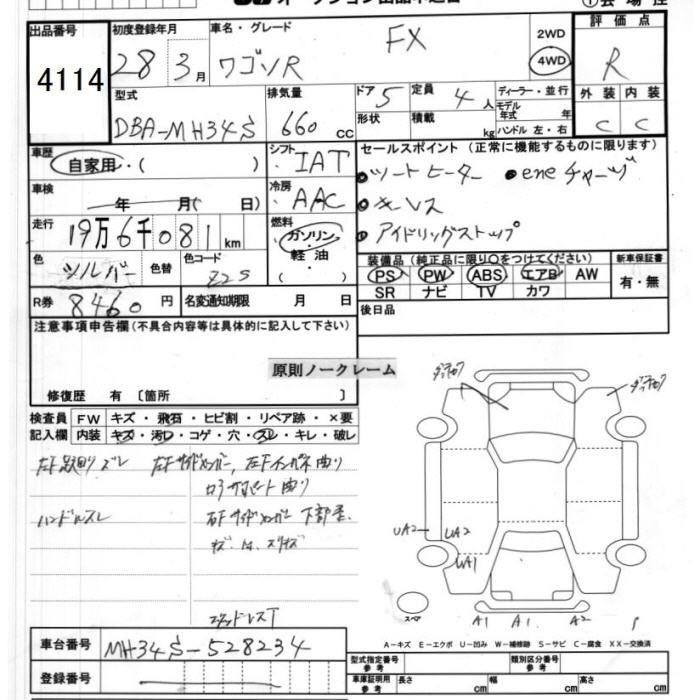 出品番号
4114
初度登録年月
28 3月
車名・グレード
ワゴンR
FX
2WD
4WD
評価点
R
外装 内装
C C
型式
DBA-MH34S
排気量
660 CC
ドア 5
形状
定員 4人
積載 kg
ディーラー・並行
モデル年式 年
ハンドル 左・右
車歴
自家用・( )
車検
年 月( 日)
走行
19万6千081km
シフト IAT
冷房 AAC
燃料
ガソリン・
軽油・
( )
色
シルバー
色替
色コード
Z2S
R券 8460円
名変通知期限 月 日
セールスポイント (正常に機能するものに限ります)
●シートヒーター ●eneチャージ
●キーレス
●アイドリングストップ
装備品 (純正品に限り○をつけてください)
PS PW ABS エアB AW
SR ナビ TV カワ
新車保証書
有・無
後日品
注意事項申告欄(不具合内容等は具体的に記入して下さい)
原則ノークレーム
修復歴 有〔箇所 〕
検査員 FW キズ・飛石・ヒビ割・リペア跡・×要
記入欄 内装 キズ・汚レ・コゲ・穴・スレ・キレ・破レ
左F足回りズレ
左Fサイドメンバー,左Fインパネ曲り
コアサポート曲り
ハンドルスレ
右Fサイドメンバー下部
スタッドレスT
UA2
UA2
UA1
スペア
A1 A1 A2
A-キズ E-エクボ U-凹み W-補修跡 S-サビ C-腐食 XX-交換済
車台番号
MH34S-528234
登録番号
型式指定番号
参考
類別区分番号
参考
車庫証明用
参考
長さ cm
幅 cm
高さ cm